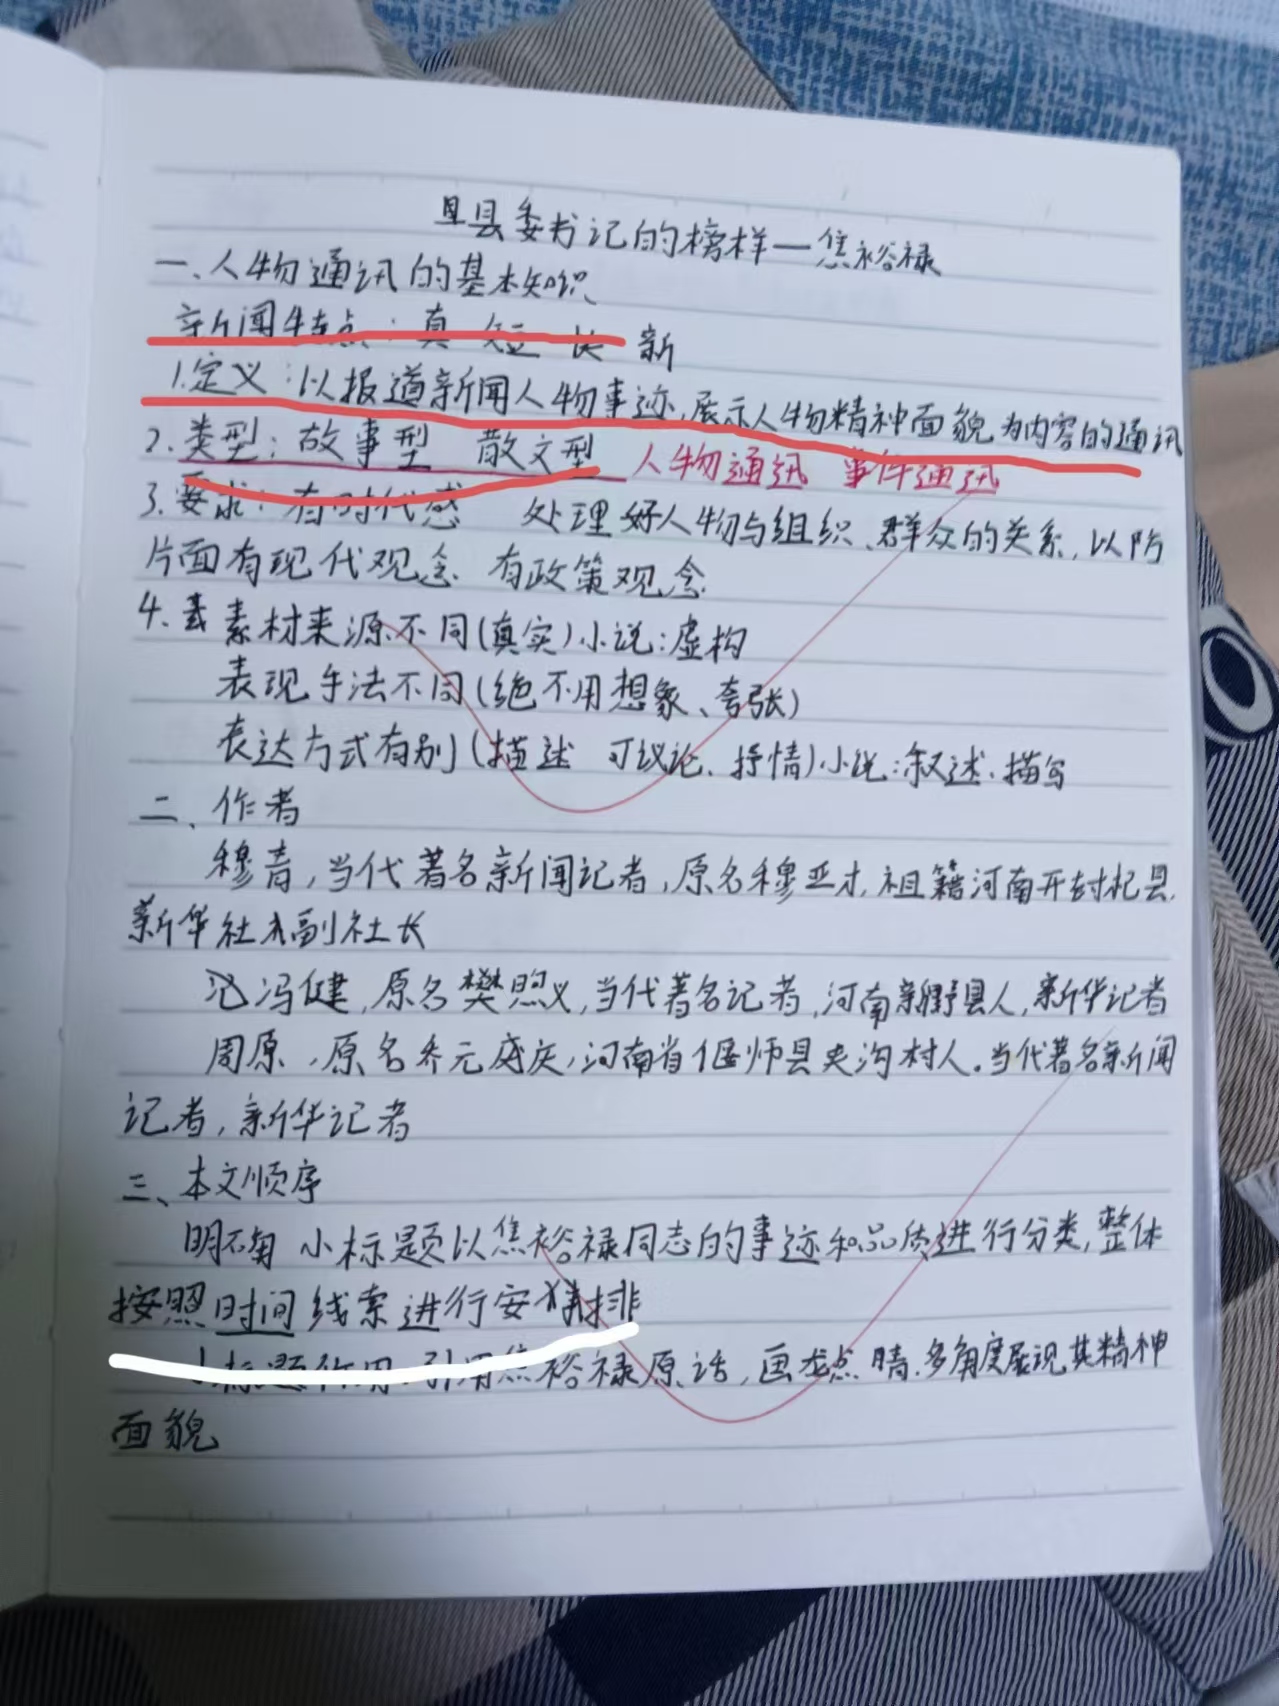 县委书记的榜样—焦裕禄
一、人物通讯的基本知识
新闻特点:真 短 快 新
1.定义:以报道新闻人物事迹,展示人物精神面貌为内容的通讯
2.类型:故事型 散文型 人物通讯 事件通讯
3.要求:有时代感 处理好人物与组织、群众的关系,以防
片面有现代观念 有政策观念
4.素材来源不同(真实)小说:虚构
表现手法不同(绝不用想象、夸张)
表达方式有别(描述 可议论、抒情)小说:叙述、描写
二、作者
穆青,当代著名新闻记者,原名穆亚才,祖籍河南开封杞县,
新华社副社长
冯健,原名樊煦义,当代著名记者,河南新野县人,新华记者
周原,原名乔元庆,河南省偃师县夹沟村人。当代著名新闻
记者,新华记者
三、本文顺序
明确 小标题以焦裕禄同志的事迹和品质进行分类,整体
按照时间线索进行安排
小标题作用 引用焦裕禄原话,画龙点睛,多角度展现其精神
面貌